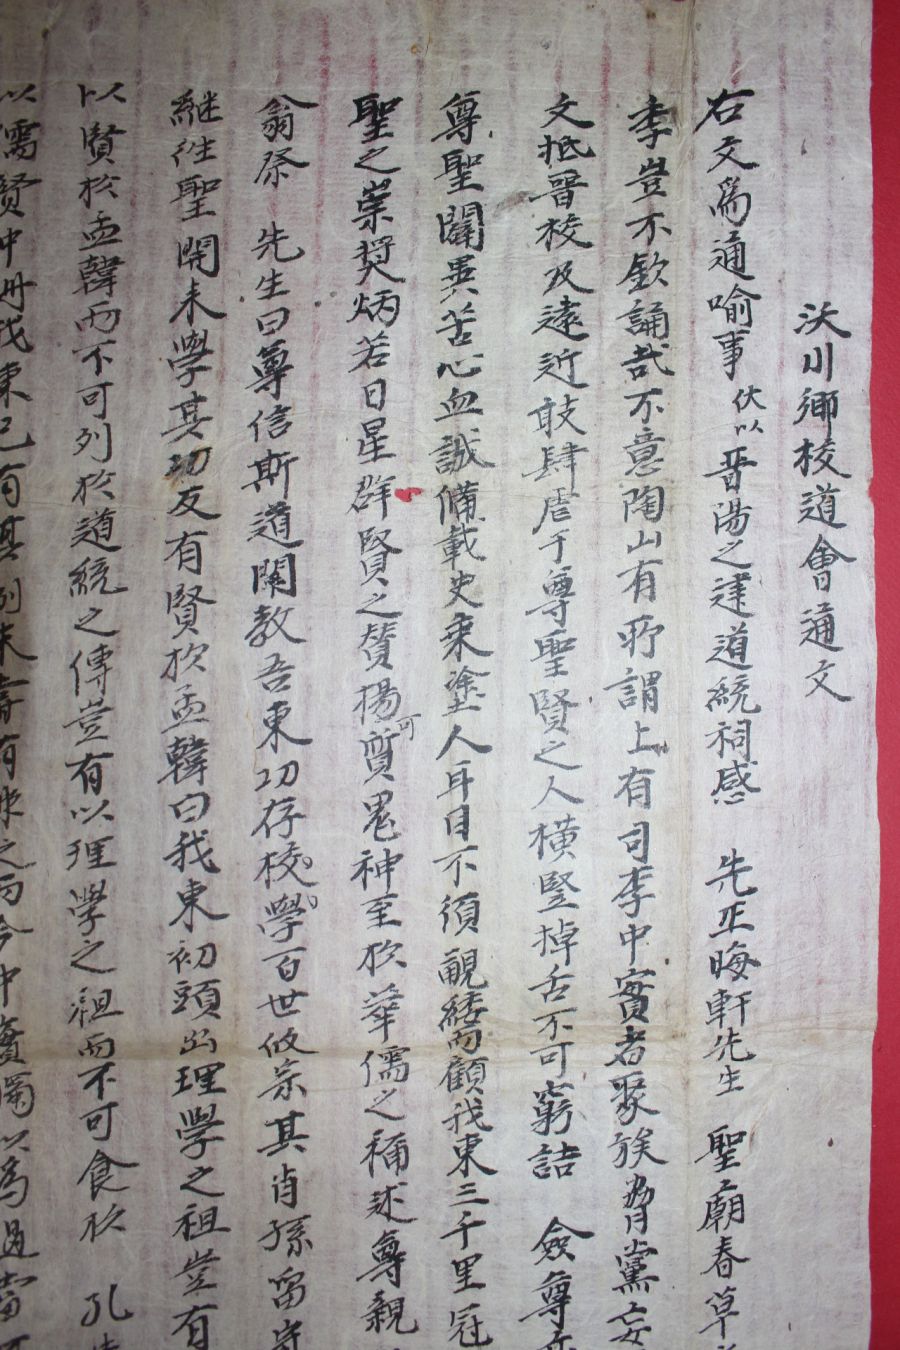 沃川鄉校道會通文
右文爲通喻事伏以晋陽之建道統祠感 先正晦軒先生 聖廟春草
李豈不欽誦哉不意陶山有所謂上有司李中實者聚族胥黨妄
文抵晋校及遠近敢肆虐于尊聖賢之人橫竪掉舌不可窮詰 僉尊
尊聖闢異苦心血誠備載史乘塗人耳目不須覼縷而顧我東三千里冠
聖之崇奬炳若日星群賢之贊揚可質鬼神至於華儒之稱述尊親
翁祭 先生曰尊信斯道闡教吾東功存校學百世攸宗其肖孫留守
継往聖開来學其功反有賢於孟韓曰我東初頭出理學之祖豈有
以賢於孟韓而不可列於道統之傳豈有以理學之祖而不可食於 孔
以儒賢中 我東已有其例 有 之而今中實獨以爲過當